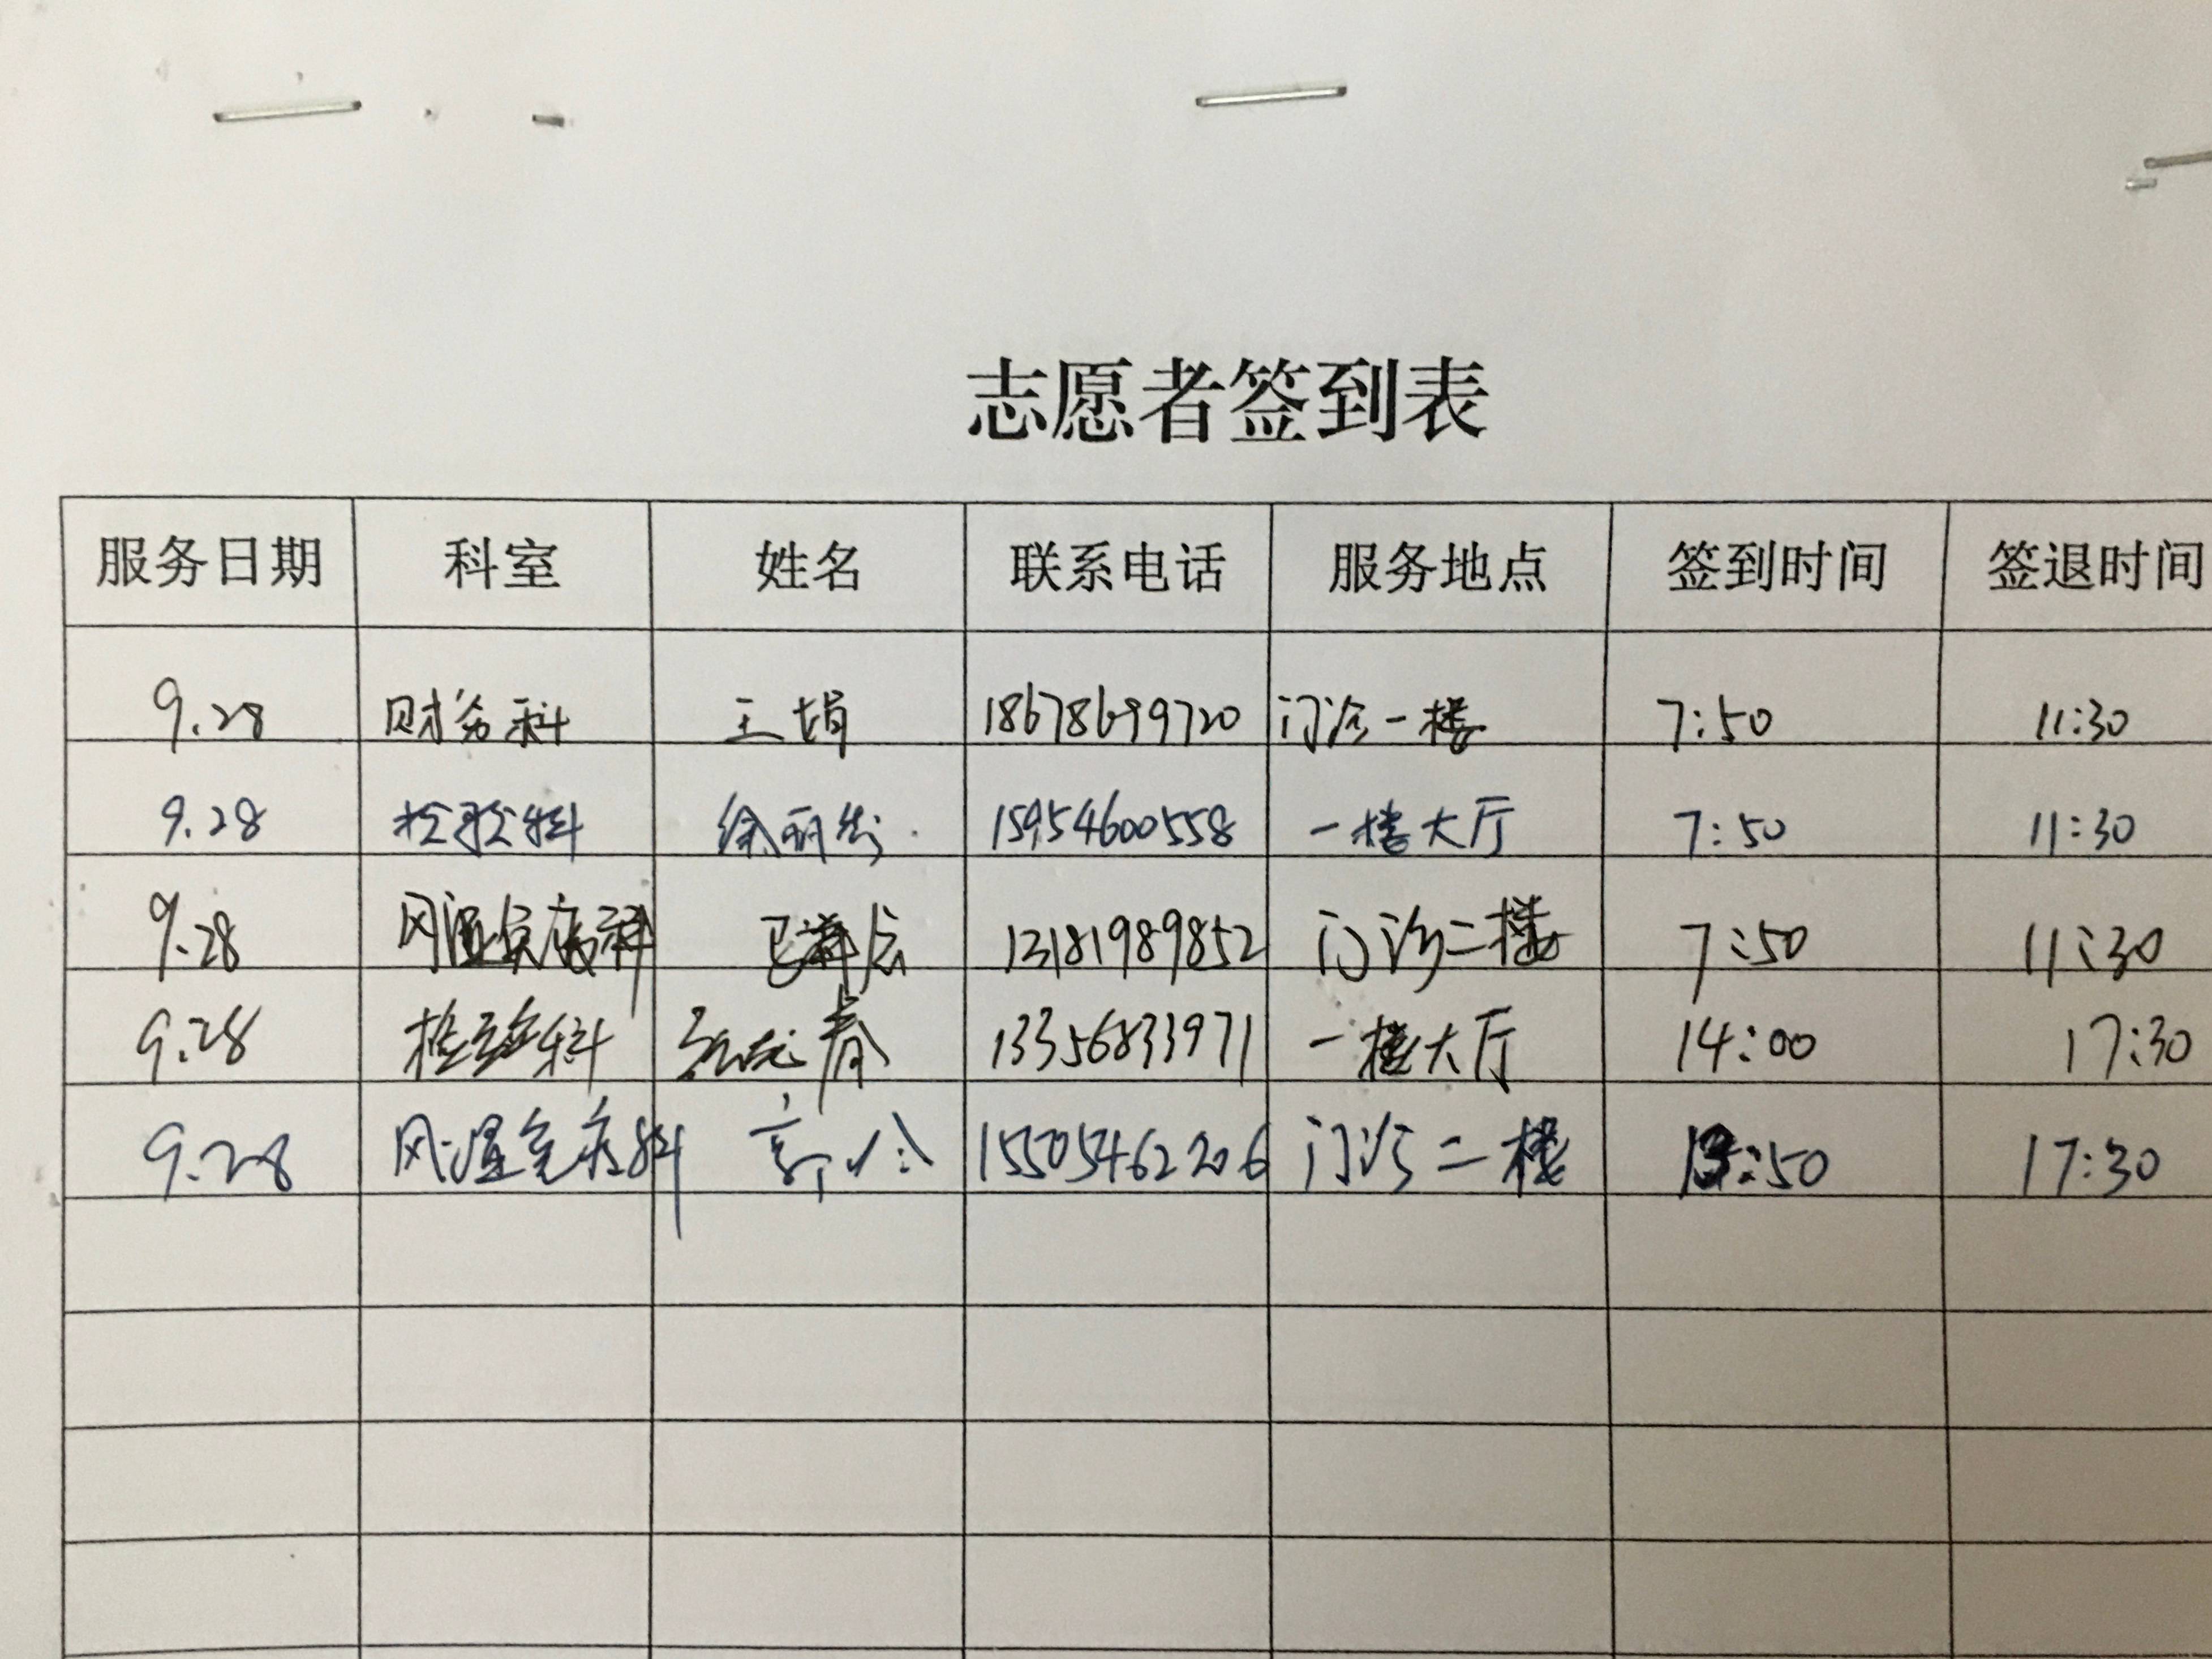 志愿者签到表
服务日期 科室 姓名 联系电话 服务地点 签到时间 签退时间
9.28 财务科 王娟 18678699720 门诊一楼 7:50 11:30
9.28 检验科 徐丽 15954600558 一楼大厅 7:50 11:30
9.28 风湿免疫科 13181989852 门诊二楼 7:50 11:30
9.28 检验科 春 13356833971 一楼大厅 14:00 17:30
9.28 风湿免疫科 15505462206 门诊二楼 13:50 17:30